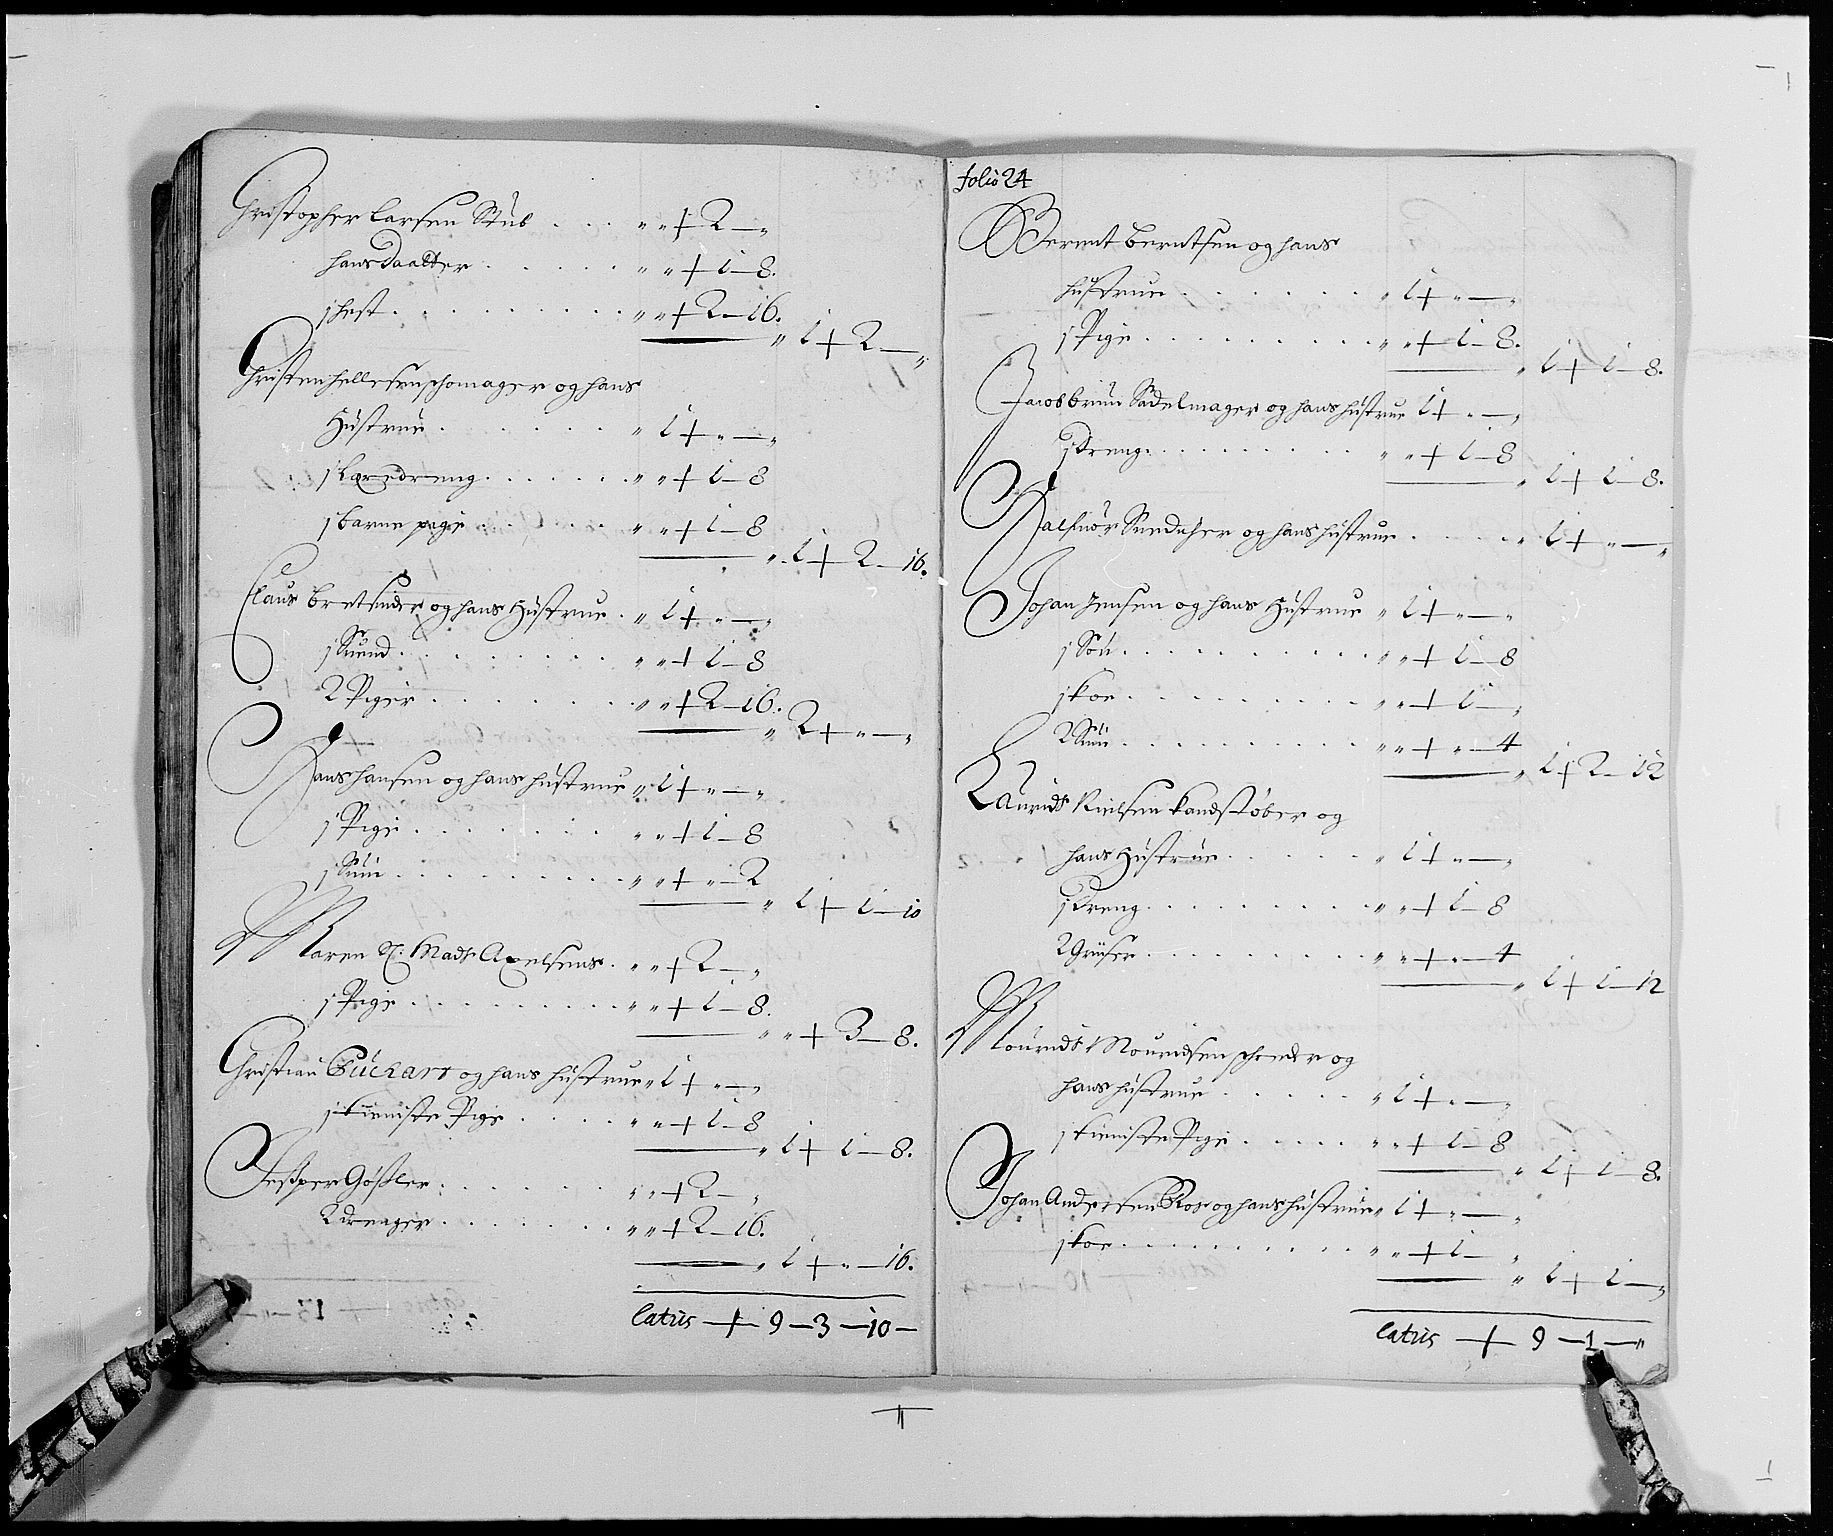 Christopher Larsen Stub . . . " " + 2 — "
hans Daatter . . . . . " " + 1 — 8.
1 hest . . . . . . . . . " " + 2 — 16.
" 1 + 2 — "
Christen hellesen schomager og hans
Hustrue . . . . . . . " 1 + " — "
1 Læredreng . . . . . . " " + 1 — 8
1 barne pige . . . . . " " + 1 — 8
" 1 + 2 — 16.
Claus og hans Hustrue . " 1 + " — "
1 Suend . . . . . . . . " " + 1 — 8
2 Piger . . . . . . . " " + 2 — 16.
" 2 + " — "
Hans hansen og hans hustrue " 1 + " — "
1 Pige . . . . . . . " " + 1 — 8
1 Suin . . . . . . . . . " " + " — 2
" 1 + 1 — 10
Maren Sl: Madts Axelsens . " " + 2 — "
1 Pige . . . . . . . . " " + 1 — 8.
" " + 3 — 8.
Christian og hans hustrue " 1 + " — "
1 tieniste Pige . . . . " " + 1 — 8
" 1 + 1 — 8.
Jesper Gösler . . . . . . . " " + 2 — "
2 drenger . . . . . . . " " + 2 — 16.
" 1 + " — 16.
Latus — + 9 — 3 — 10 —
folio 24
Berent Berntsen og hans
hustrue . . . . . . . " 1 + " — "
1 Pige . . . . . . . . . " " + 1 — 8.
" 1 + 1 — 8.
Jacob Bruun Sadelmager og hans hustrue 1 + " — "
1 Dreng . . . . . . . . . " " + 1 — 8
" 1 + 1 — 8.
og hans hustrue . . . . " 1 + " — "
Johan Jensen og hans Hustrue " 1 + " — "
1 Sön . . . . . . . . . . " " + 1 — 8
1 koe . . . . . . . . . . " " + 1 — "
2 Suin . . . . . . . . . . " " + " — 4
" 1 + 2 — 12
Lauridts Nielsen kandstøber og
hans Hustrue . . . . . . " 1 + " — "
1 Dreng . . . . . . . . . " " + 1 — 8
2 Griiser . . . . . . . . . " " + " — 4
" 1 + 1 — 12
Mouridts Mouridsen schreder og
hans hustrue . . . . . " 1 + " — "
1 tieniste Pige . . . . . " " + 1 — 8
" 1 + 1 — 8.
Johan Andersen og hans hustrue " 1 + " — "
1 koe . . . . . . . . . " " + 1 — "
" 1 + 1 — "
Latus — + 9 — 1 — "